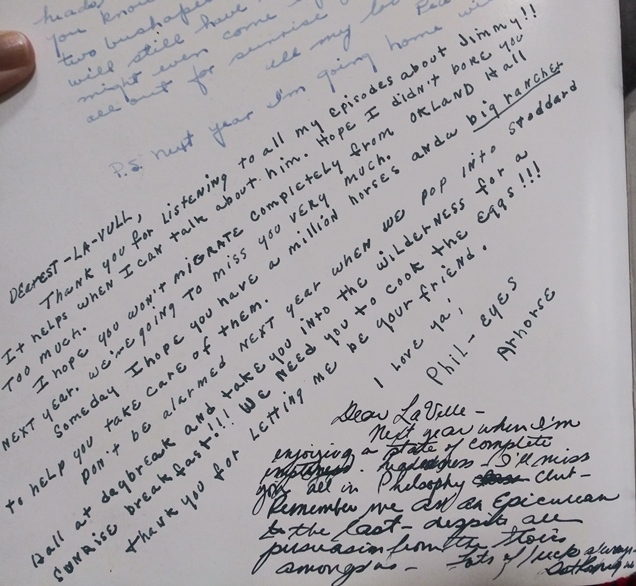 heads
you know
two bushaped
will still have
might even come
all out for sunrise
all my
P.S. Next year I'm going home
DEAREST-LA-VULL,
Thank you for listening to all my episodes about Jimmy!!
It helps when I can talk about him. Hope I didn't bore you
too much.
I hope you won't migrate completely from OKLAND Hall
next year. We're going to miss you very much.
Someday I hope you have a million horses and a big rancher
to help you take care of them.
Don't be alarmed next year when we pop into Stoddard
Hall at daybreak and take you into the wilderness for a
sunrise breakfast!!! We need you to cook the eggs!!!
Thank you for letting me be your friend.
I love ya,
Phil-eyes
Arhorse
Dear LaVelle -
Next year when I'm
enjoying a state of complete
I'll miss
you all in Philosphy club -
Remember me as an Epicurean
to the last - despite all
persuasion from the Stoics
amongst us - Lots of luck always -